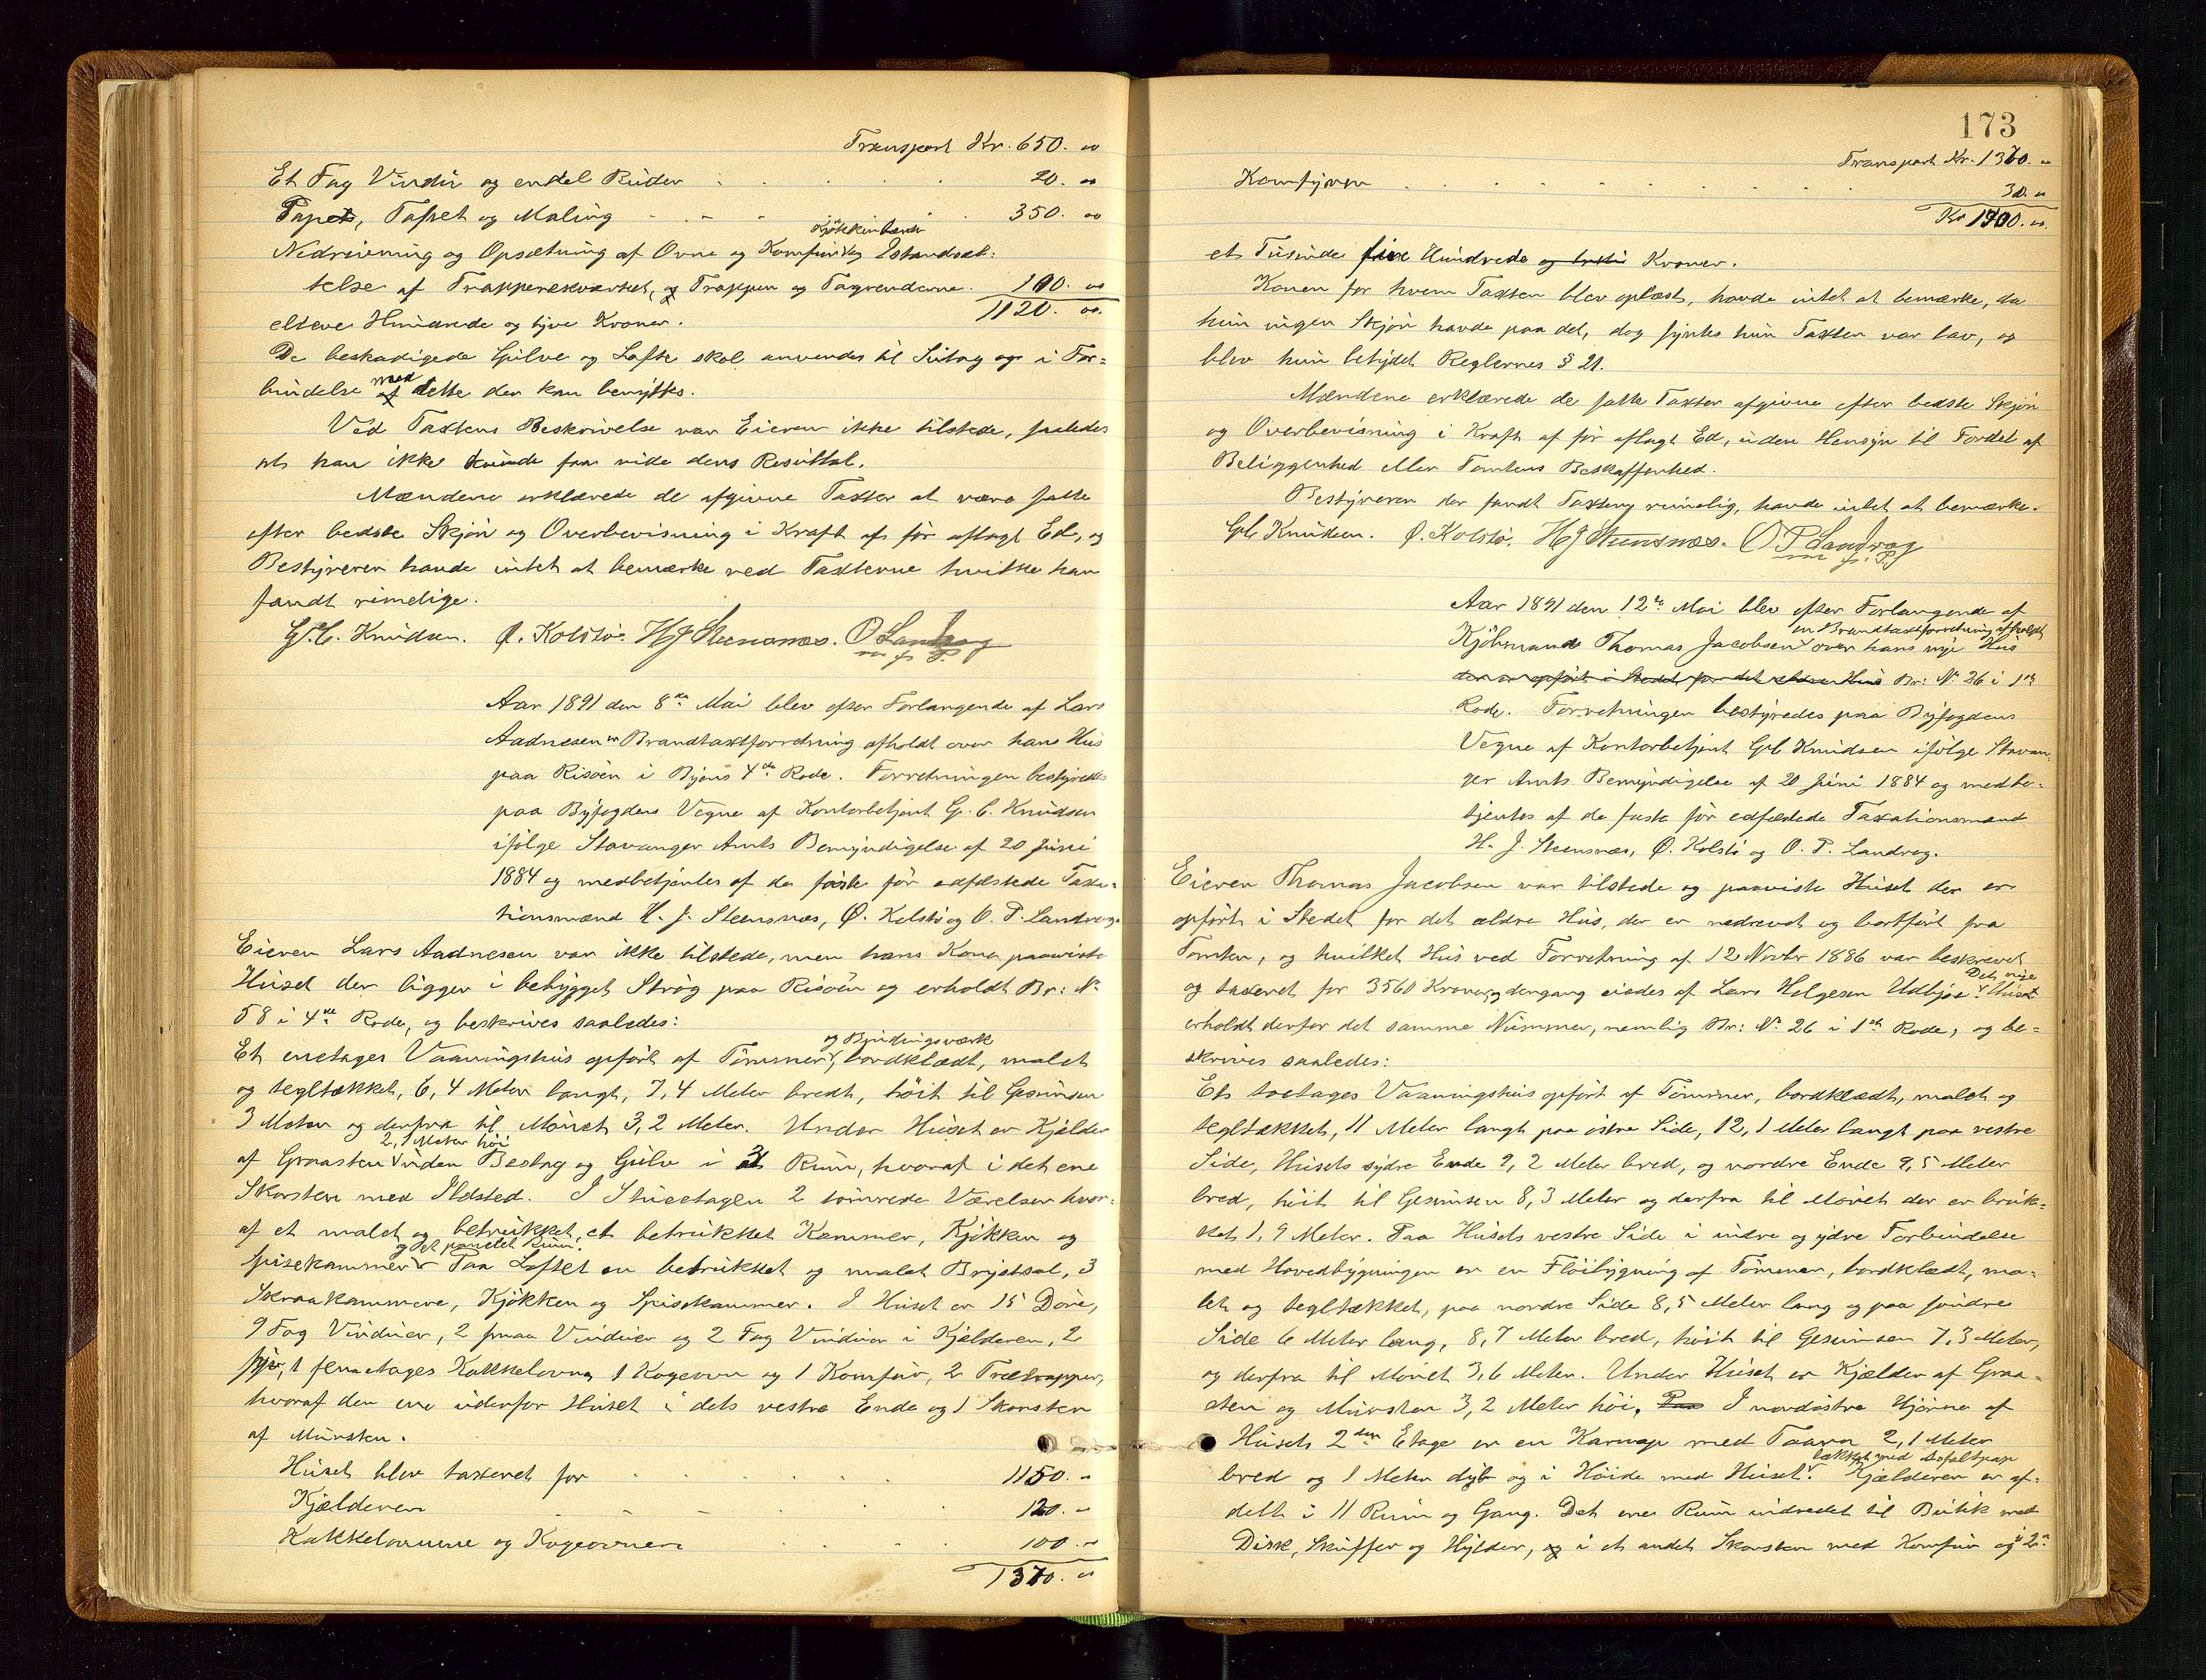 Transport Kr. 650. 00
Et Fag Vindu og enkel Ruder . . . . 20. 00
Tapet, Tapet og Maling . . . . 350. 00
Kjøkkenbænk
Nedrivning og Opsætning af Ovne og Komfur, Istandsæt:
telse af Trapperækværket, Trappen og Tagrenderne. 100. 00
elleve Hundrede og tyve Kroner. 1120. 00.
De beskadigede Gulve og Lofte skal anvendes til Sutag og i For=
bindelse med dette der kan benyttes.
Ved Taxtens Beskrivelse var Eieren ikke tilstede, saaledes
at han ikke kunde faa vide dens Resultat.
Mændene erklærede de afgivne Taxter at være satte
efter bedste Skjøn og Overbevisning i Kraft af før aflagt Ed, og
Bestyreren havde intet at bemærke ved Taxterne hvilke han
fandt rimelige.
G. C. Knudsen. Ø. Kolstø. H J Steensnæs. O Landrog
m f. P.
Aar 1891 den 8de Mai blev efter Forlangende af Lars
Aadnesen en Brandtaxtforretning afholdt over hans Hus
paa Risøen i Byens 4de Rode. Forretningen bestyredes
paa Byfogdens Vegne af Kontorbetjent G. C. Knudsen
ifølge Stavanger Amts Bemyndigelse af 20 Juni
1884 og medbetjentes af de faste før edfæstede Taxa=
tionsmænd H. J. Steensnæs, Ø. Kolstø og O. P. Landrog.
Eieren Lars Aadnesen var ikke tilstede, men hans Kone paaviste
Huset der ligger i bebygget Strøg paa Risøen og erholdt Br: No
58 i 4de Rode, og beskrives saaledes:
og Bindingsværk
Et enetages Vaaningshus opført af Tømmer, bordklædt, malet
og tegltækket, 6,4 Meter langt, 7,4 Meter bredt, høit til Gesimsen
3 Meter og derfra til Mønet 3,2 Meter. Under Huset er Kjelder
2,1 Meter høi
af Graasten uden Beslag og Gulv i 3 Rum, hvoraf i det ene
Skorsten med Ildsted. I Stueetagen 2 tømrede Værelser hvor=
af et malet og betrukket, et betrukket Kammer, Kjøkken og
og et panelet Rum.
Spisekammer. Paa Loftet en betrukket og malet Brystsal, 3
Skraakammere, Kjøkken og Spisekammer. I Huset er 15 Døre,
9 Fag Vinduer, 2 smaa Vinduer og 2 Fag Vinduer i Kjelderen, 2
1 femetages Kakkelovn, 1 Kogeovn og 1 Komfur, 2 Trætrapper,
hvoraf den ene udenfor Huset i dets vestre Ende og 1 Skorsten
af Mursten.
Huset blev taxeret for . . . . 1150. 00
Kjelderen . . . . 120. 00
Kakkelovnene og Kogeovnen . . . . 100. 00
1370. 00
173
Transport Kr. 1370. 00
Komfyren . . . . 30. 00
Kr 1400. 00.
et Tusinde fire Hundrede Kroner.
Konen for hvem Taxten blev oplæst, havde intet at bemærke, da
hun ingen Skjøn havde paa det, dog syntes hun Taxten var lav, og
blev hun betydet Reglernes § 21.
Mændene erklærede de satte Taxter afgivne efter bedste Skjøn
og Overbevisning i Kraft af før aflagt Ed, uden Hensyn til Fordel af
Beliggenhed eller Tomtens Beskaffenhed.
Bestyreren der fandt Taxten rimelig, havde intet at bemærke.
GC Knudsen. Ø. Kolstø. H J Steensnæs. O P Landrog
m f. P.
Aar 1891 den 12te Mai blev efter Forlangende af
en Brandtaxtforretning afholdt
Kjøbmand Thomas Jacobsen over hans nye Hus
der er opført i Stedet for det ældre Hus Br: No 26 i 1ste
Rode. Forretningen bestyredes paa Byfogdens
Vegne af Kontorbetjent GC Knudsen ifølge Stavan=
ger Amts Bemyndigelse af 20 Juni 1884 og medbe=
tjentes af de faste før edfæstede Taxationsmænd
H. J. Steensnæs, Ø. Kolstø og O. P. Landrog.
Eieren Thomas Jacobsen var tilstede og paaviste Huset der er
opført i Stedet for det ældre Hus, der er nedrevet og bortført fra
Tomten, og hvilket Hus ved Forretning af 12 Novbr 1886 var beskrevet
Det nye
og taxeret for 3560 Kroner, og dengang eiedes af Lars Helgesen Udbjøe. Huset
erholdt derfor det samme Nummer, nemlig Br: No 26 i 1ste Rode, og be=
skrives saaledes:
Et toetages Vaaningshus opført af Tømmer, bordklædt, malet og
tegltækket, 11 Meter langt paa østre Side, 12,1 Meter langt paa vestre
Side, Husets sydre Ende 9,2 Meter bred, og nordre Ende 9,5 Meter
bred, høit til Gesimsen 8,3 Meter og derfra til Mønet der er bruk=
ket 1,9 Meter. Paa Husets vestre Side i indre og ydre Forbindelse
med Hovedbygningen er en Fløibygning af Tømmer, bordklædt, ma=
let og tegltækket, paa nordre Side 8,5 Meter lang og paa søndre
Side 6 Meter lang, 8,7 Meter bred, høit til Gesimsen 7,3 Meter,
og derfra til Mønet 3,6 Meter. Under Huset er Kjælder af Graa=
sten og Mursten 3,2 Meter høi. I nordøstre Hjørne af
Husets 2den Etage er en Karnap med Taarn 2,1 Meter
tækket med Asfaltpap
bred og 1 Meter dyb og i Høide med Huset. Kjælderen er af=
delt i 11 Rum og Gang. Det ene Rum indredet til Butik med
Disk, Skuffer og Hylder, i et andet Skorsten med Komfur og i 2